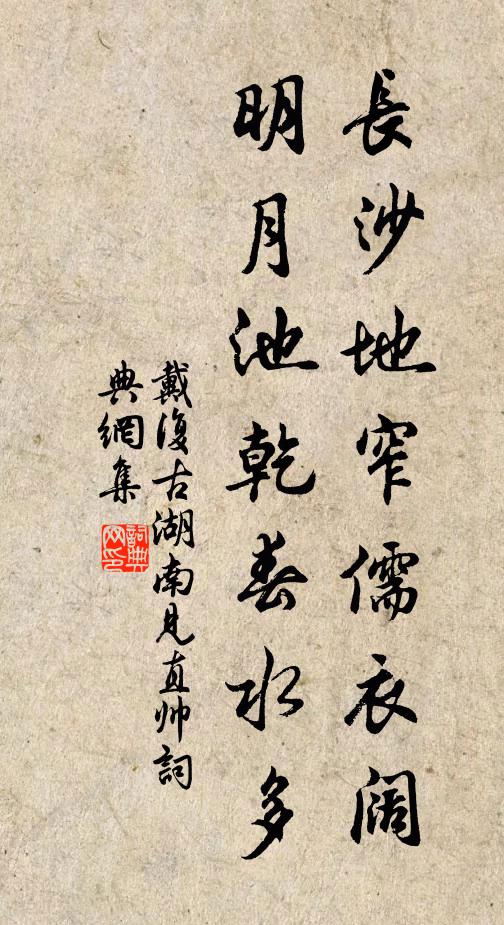 長沙地窄儒衣闊
明月池乾春水多
戴復古湖南見直帥詞
典網集
詞典網印